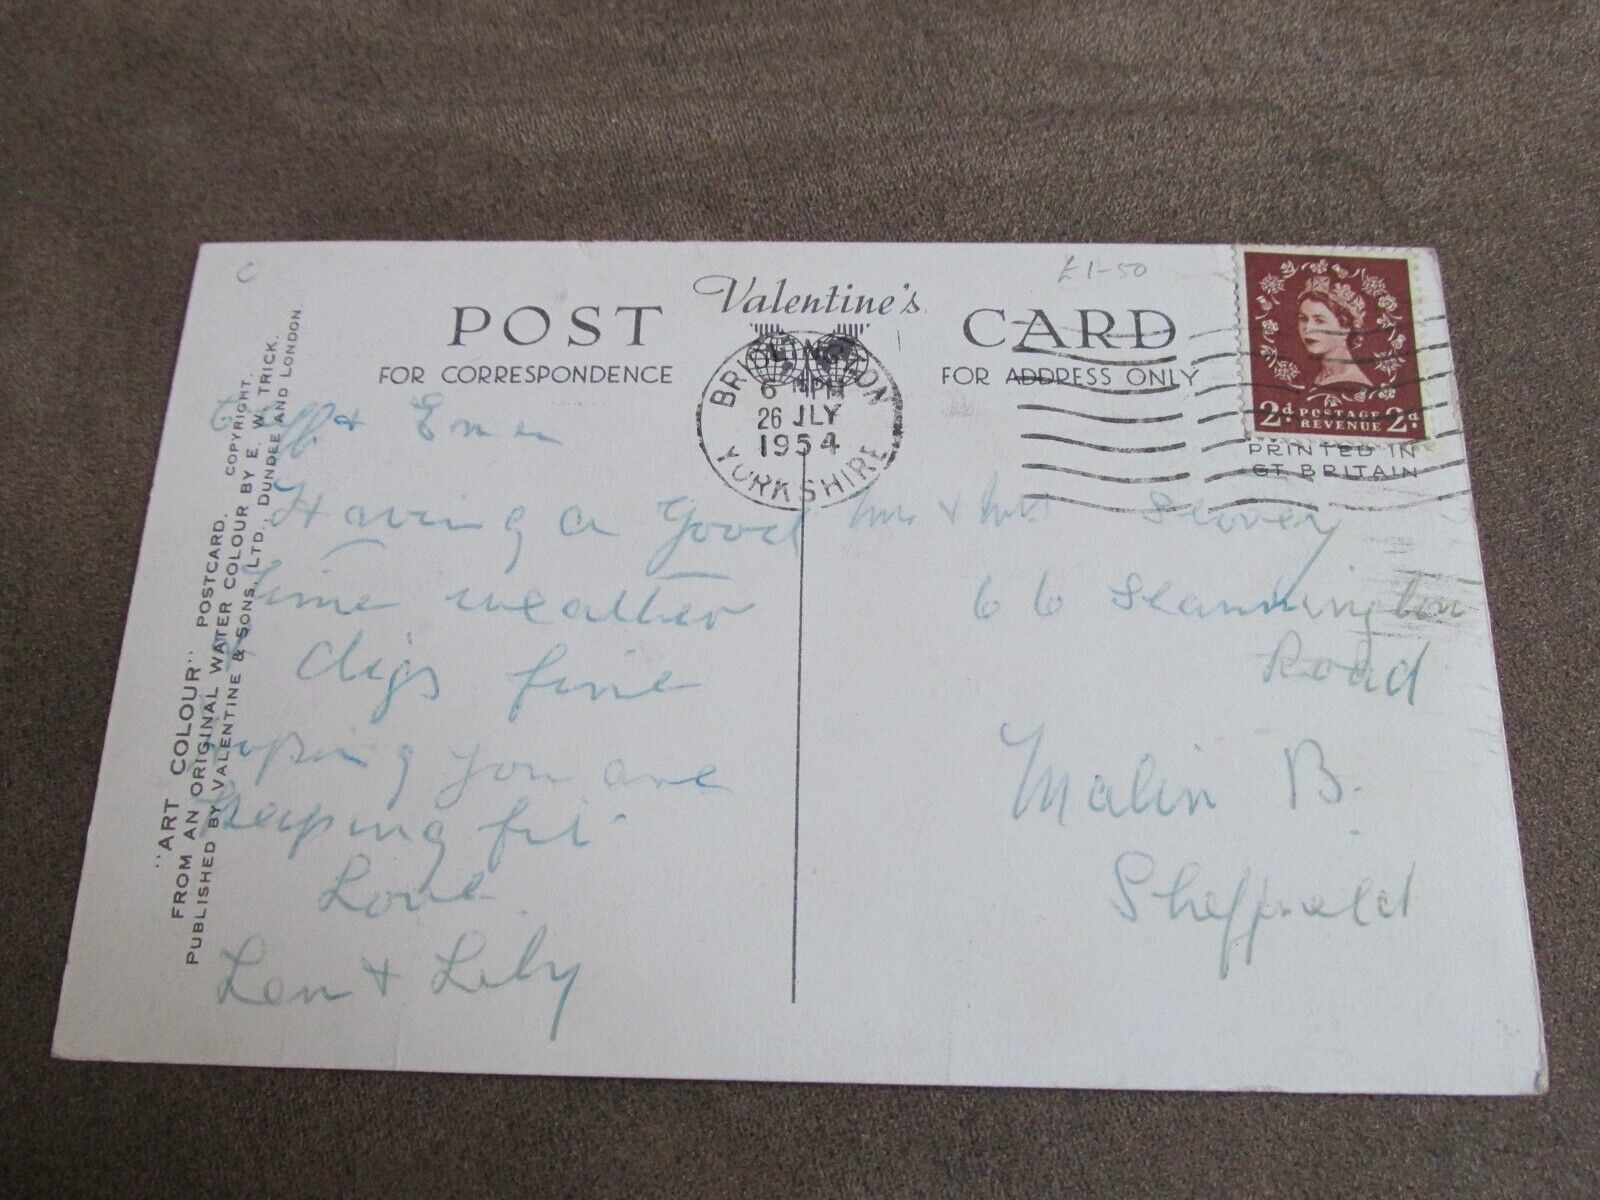 C
£1-50
Valentine's
POST CARD
FOR CORRESPONDENCE
FOR ADDRESS ONLY
BRIDLINGTON
6 PM
26 JLY
1954
YORKSHIRE
2d. POSTAGE REVENUE 2d.
PRINTED IN
GT BRITAIN
"ART COLOUR" POSTCARD. COPYRIGHT.
FROM AN ORIGINAL WATER COLOUR BY E. W. TRICK.
PUBLISHED BY VALENTINE & SONS, LTD., DUNDEE AND LONDON.
+
Having a good
time weather
+ digs fine
hoping you are
keeping fit
Love
Len + Lily
Mr & Mrs
66
Road
Malin B.
Sheffield